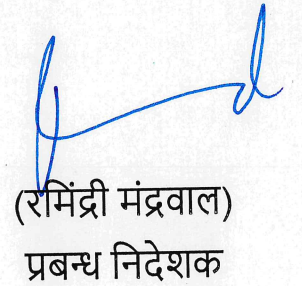 (रमिंद्री मंद्रवाल)
प्रबन्ध निदेशक